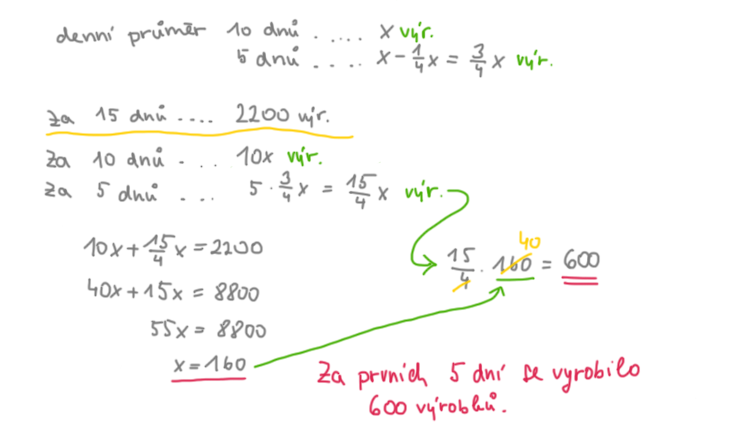 denní průměr 10 dnů ..... x výr.
5 dnů .... x - 1/4 x = 3/4 x výr.
za 15 dnů .... 2200 výr.
za 10 dnů . ... 10x výr.
za 5 dnů ... 5 · 3/4 x = 15/4 x výr.
10x + 15/4 x = 2200
40x + 15x = 8800
55x = 8800
x = 160
40
15/4 · 160 = 600
Za prvních 5 dní se vyrobilo
600 výrobků.